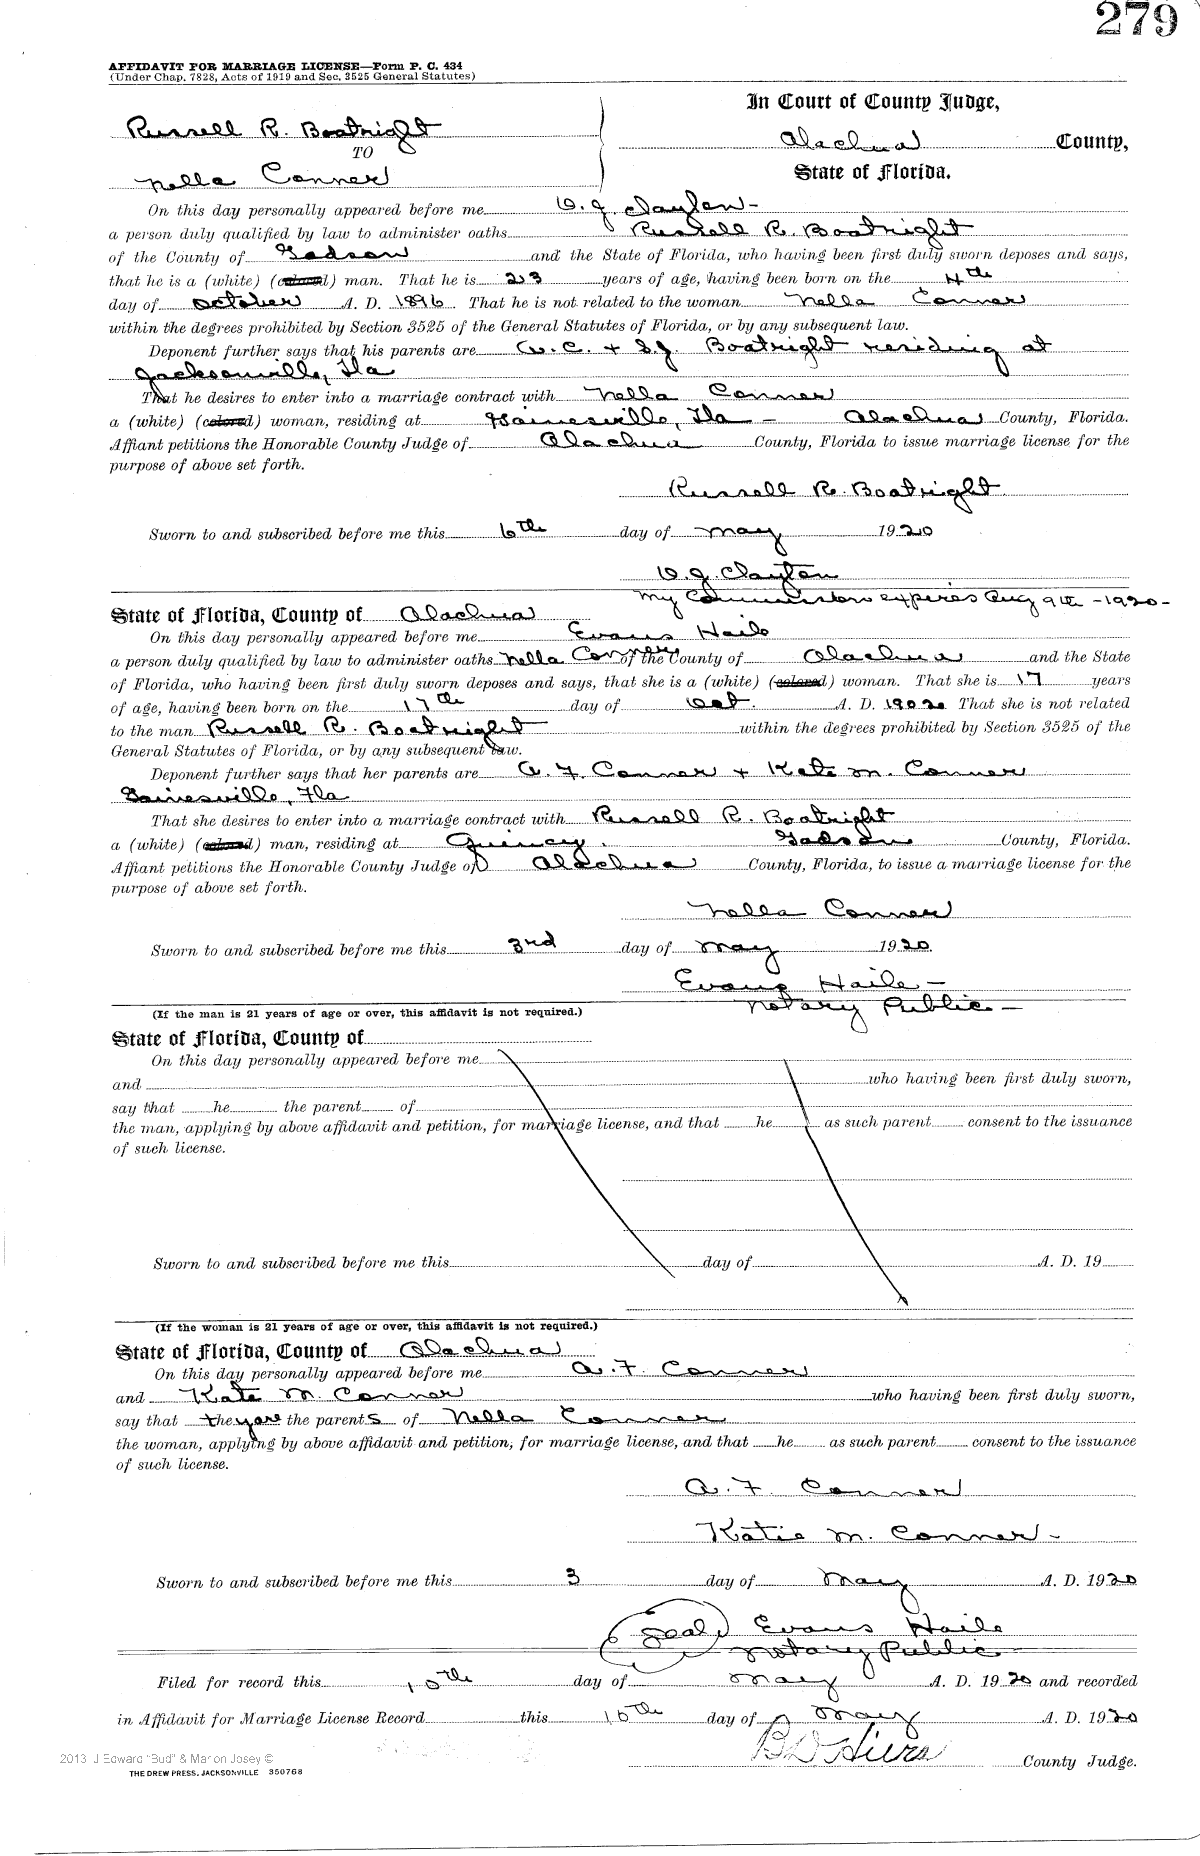 279
AFFIDAVIT FOR MARRIAGE LICENSE—Form P. C. 434
(Under Chap. 7828, Acts of 1919 and Sec. 3525 General Statutes)
Russell R. Boatright
TO
Nella Conner
In Court of County Judge,
Alachua County,
State of Florida.
On this day personally appeared before me O. J. Clayton -
a person duly qualified by law to administer oaths Russell R. Boatright
of the County of Gadson and the State of Florida, who having been first duly sworn deposes and says,
that he is a (white) (colored) man. That he is 23 years of age, having been born on the 4th
day of October A. D. 1896 That he is not related to the woman Nella Conner
within the degrees prohibited by Section 3525 of the General Statutes of Florida, or by any subsequent law.
Deponent further says that his parents are W. C. + S. J. Boatright residing at
Jacksonville, Fla
That he desires to enter into a marriage contract with Nella Conner
a (white) (colored) woman, residing at Gainesville, Fla - Alachua County, Florida.
Affiant petitions the Honorable County Judge of Alachua County, Florida to issue marriage license for the
purpose of above set forth.
Russell R. Boatright
Sworn to and subscribed before me this 6th day of May 1920
O. J. Clayton
My Commission expires Aug 9th - 1920 -
State of Florida, County of Alachua
On this day personally appeared before me Evans Haile
a person duly qualified by law to administer oaths Nella Conner of the County of Alachua and the State
of Florida, who having been first duly sworn deposes and says, that she is a (white) (colored) woman. That she is 17 years
of age, having been born on the 17th day of Oct. A. D. 1902 That she is not related
to the man Russell R. Boatright within the degrees prohibited by Section 3525 of the
General Statutes of Florida, or by any subsequent law.
Deponent further says that her parents are A. F. Conner + Kate M. Conner
Gainesville, Fla
That she desires to enter into a marriage contract with Russell R. Boatright
a (white) (colored) man, residing at Quincy. Gadson County, Florida.
Affiant petitions the Honorable County Judge of Alachua County, Florida, to issue a marriage license for the
purpose of above set forth.
Nella Conner
Sworn to and subscribed before me this 3rd day of May 1920
Evans Haile -
Notary Public -
(If the man is 21 years of age or over, this affidavit is not required.)
State of Florida, County of
On this day personally appeared before me
and who having been first duly sworn,
say that he the parent of
the man, applying by above affidavit and petition, for marriage license, and that he as such parent consent to the issuance
of such license.
Sworn to and subscribed before me this day of A. D. 19
(If the woman is 21 years of age or over, this affidavit is not required.)
State of Florida, County of Alachua
On this day personally appeared before me A. F. Conner
and Kate M. Conner who having been first duly sworn,
say that they are the parents of Nella Conner
the woman, applying by above affidavit and petition, for marriage license, and that he as such parent consent to the issuance
of such license.
A. F. Conner
Katie M. Conner -
Sworn to and subscribed before me this 3 day of May A. D. 1920
(Seal) Evans Haile
Notary Public
Filed for record this 10th day of May A. D. 1920 and recorded
in Affidavit for Marriage License Record this 10th day of May A. D. 1920
B D Hiers County Judge.
2013 J Edward "Bud" & Marion Josey ©
THE DREW PRESS, JACKSONVILLE 350768